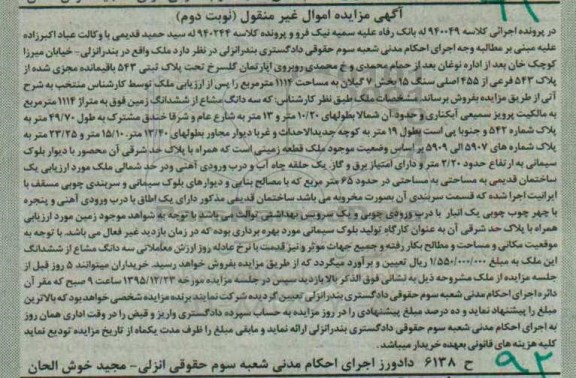 آگهی مزایده اموال غیر منقول (نوبت دوم)
در پرونده اجرائی کلاسه ۹۴۰۰۴۹ له بانک رفاه علیه سمیه نیک فرو و پرونده کلاسه ۹۴۰۲۴۴ له سید حمید قدیمی با وکالت عباد اکبرزاده
علیه مبنی بر مطالبه وجه اجرای احکام مدنی شعبه سوم حقوقی دادگستری بندرانزلی در نظر دارد ملک واقع در بندرانزلی - خیابان میرزا
کوچک خان بعد از اداره نوغان بعد از حمام محمدی و خ محمدی روبروی آپارتمان گلسرخ تحت پلاک ثبتی ۵۴۳ باقیمانده مجزی شده از
پلاک ۵۴۳ فرعی از ۴۵۵ اصلی سنگ ۱۵ بخش ۷ گیلان به مساحت ۱۱۱۴ مترمربع را پس از ارزیابی ملک توسط کارشناس منتخب به شرح
آتی از طریق مزایده بفروش برساند. مشخصات ملک طبق نظر کارشناس: که سه دانگ مشاع از ششدانگ زمین فوق به متراژ ۱۱۱۴ مترمربع
به مالکیت پرویز سمیعی آبکناری و حدود آن شمالا بطولهای ۱۰/۲۰ متر و ۱۳ متر به شارع عام و شرقا خندق مشترک به طول ۴۹/۷۰ متر به
پلاک شماره ۵۴۲ و جنوبا پی است بطول ۱۹ متر به کوچه جدیدالاحداث و غربا دیوار مجاور بطولهای ۱۳/۴۰ متر، ۱۵/۱۰ متر و ۲۳/۲۵ متر به
پلاک شماره های ۵۹۰۷ الی ۵۹۰۹ بر اساس وضعیت موجود ملک قطعه زمینی است که همراه با پلاک حد شرقی آن محصور با دیوار بلوک
سیمانی به ارتفاع حدود ۲/۲۰ متر و دارای امتیاز برق و گاز، یک حلقه چاه آب و درب ورودی آهنی ودر حد شمالی ملک مورد ارزیابی یک
ساختمان قدیمی به مساحتی به مساحتی در حدود ۶۵ متر مربع که با مصالح بنایی و دیوارهای بلوک سیمانی و سربندی چوبی مسقف با
ایرانیت اجرا شده که قسمت سربندی آن بصورت مخروبه می باشد. ساختمان قدیمی مذکور دارای یک اطاق با درب ورودی آهنی و پنجره
با چهر چوب چوبی یک انبار با درب ورودی چوبی و یک سرویس بهداشتی توالت می باشد با توجه به شواهد موجود زمین مورد ارزیابی
همراه با پلاک حد شرقی آن به عنوان کارگاه تولید بلوک سیمانی مورد بهره برداری بوده که در زمان بازدید غیر فعال می باشد. با توجه به
موقعیت مکانی و مساحت و مصالح بکار رفته و جمیع جهات موثر و نیز قدمت با نرخ عادله روز ارزش معاملاتی سه دانگ مشاع از ششدانگ
این ملک به مبلغ ۱/۵۵۰/۰۰۰/۰۰۰ ریال تعیین و برآورد میگردد که از طریق مزایده بفروش خواهد رسید. خریداران میتوانند ۵ روز قبل از
جلسه مزایده از ملک مشروحه ذیل به نشانی فوق الذکر بالا بازدید سپس در جلسه مزایده مورخه ۱۳۹۵/۱۲/۲۳ ساعت ۹ صبح که مقر آن
دائره اجرای احکام مدنی شعبه سوم حقوقی دادگستری بندرانزلی تعیین گردیده شرکت نمایند برنده مزایده شخصی خواهد بود که بالاترین
مبلغ را پیشنهاد نماید و ده درصد مبلغ پیشنهادی را در روز مزایده به حساب سپرده دادگستری واریز و قبض را در وقت اداری همان روز
به اجرای احکام مدنی شعبه سوم حقوقی دادگستری بندرانزلی ارائه نماید و مابقی مبلغ را ظرف مدت یکماه از تاریخ مزایده تودیع نماید
کلیه هزینه های قانونی بعهده خریدار میباشد.
ح ۶۱۳۸ دادورز اجرای احکام مدنی شعبه سوم حقوقی انزلی - مجید خوش الحان
۹۲